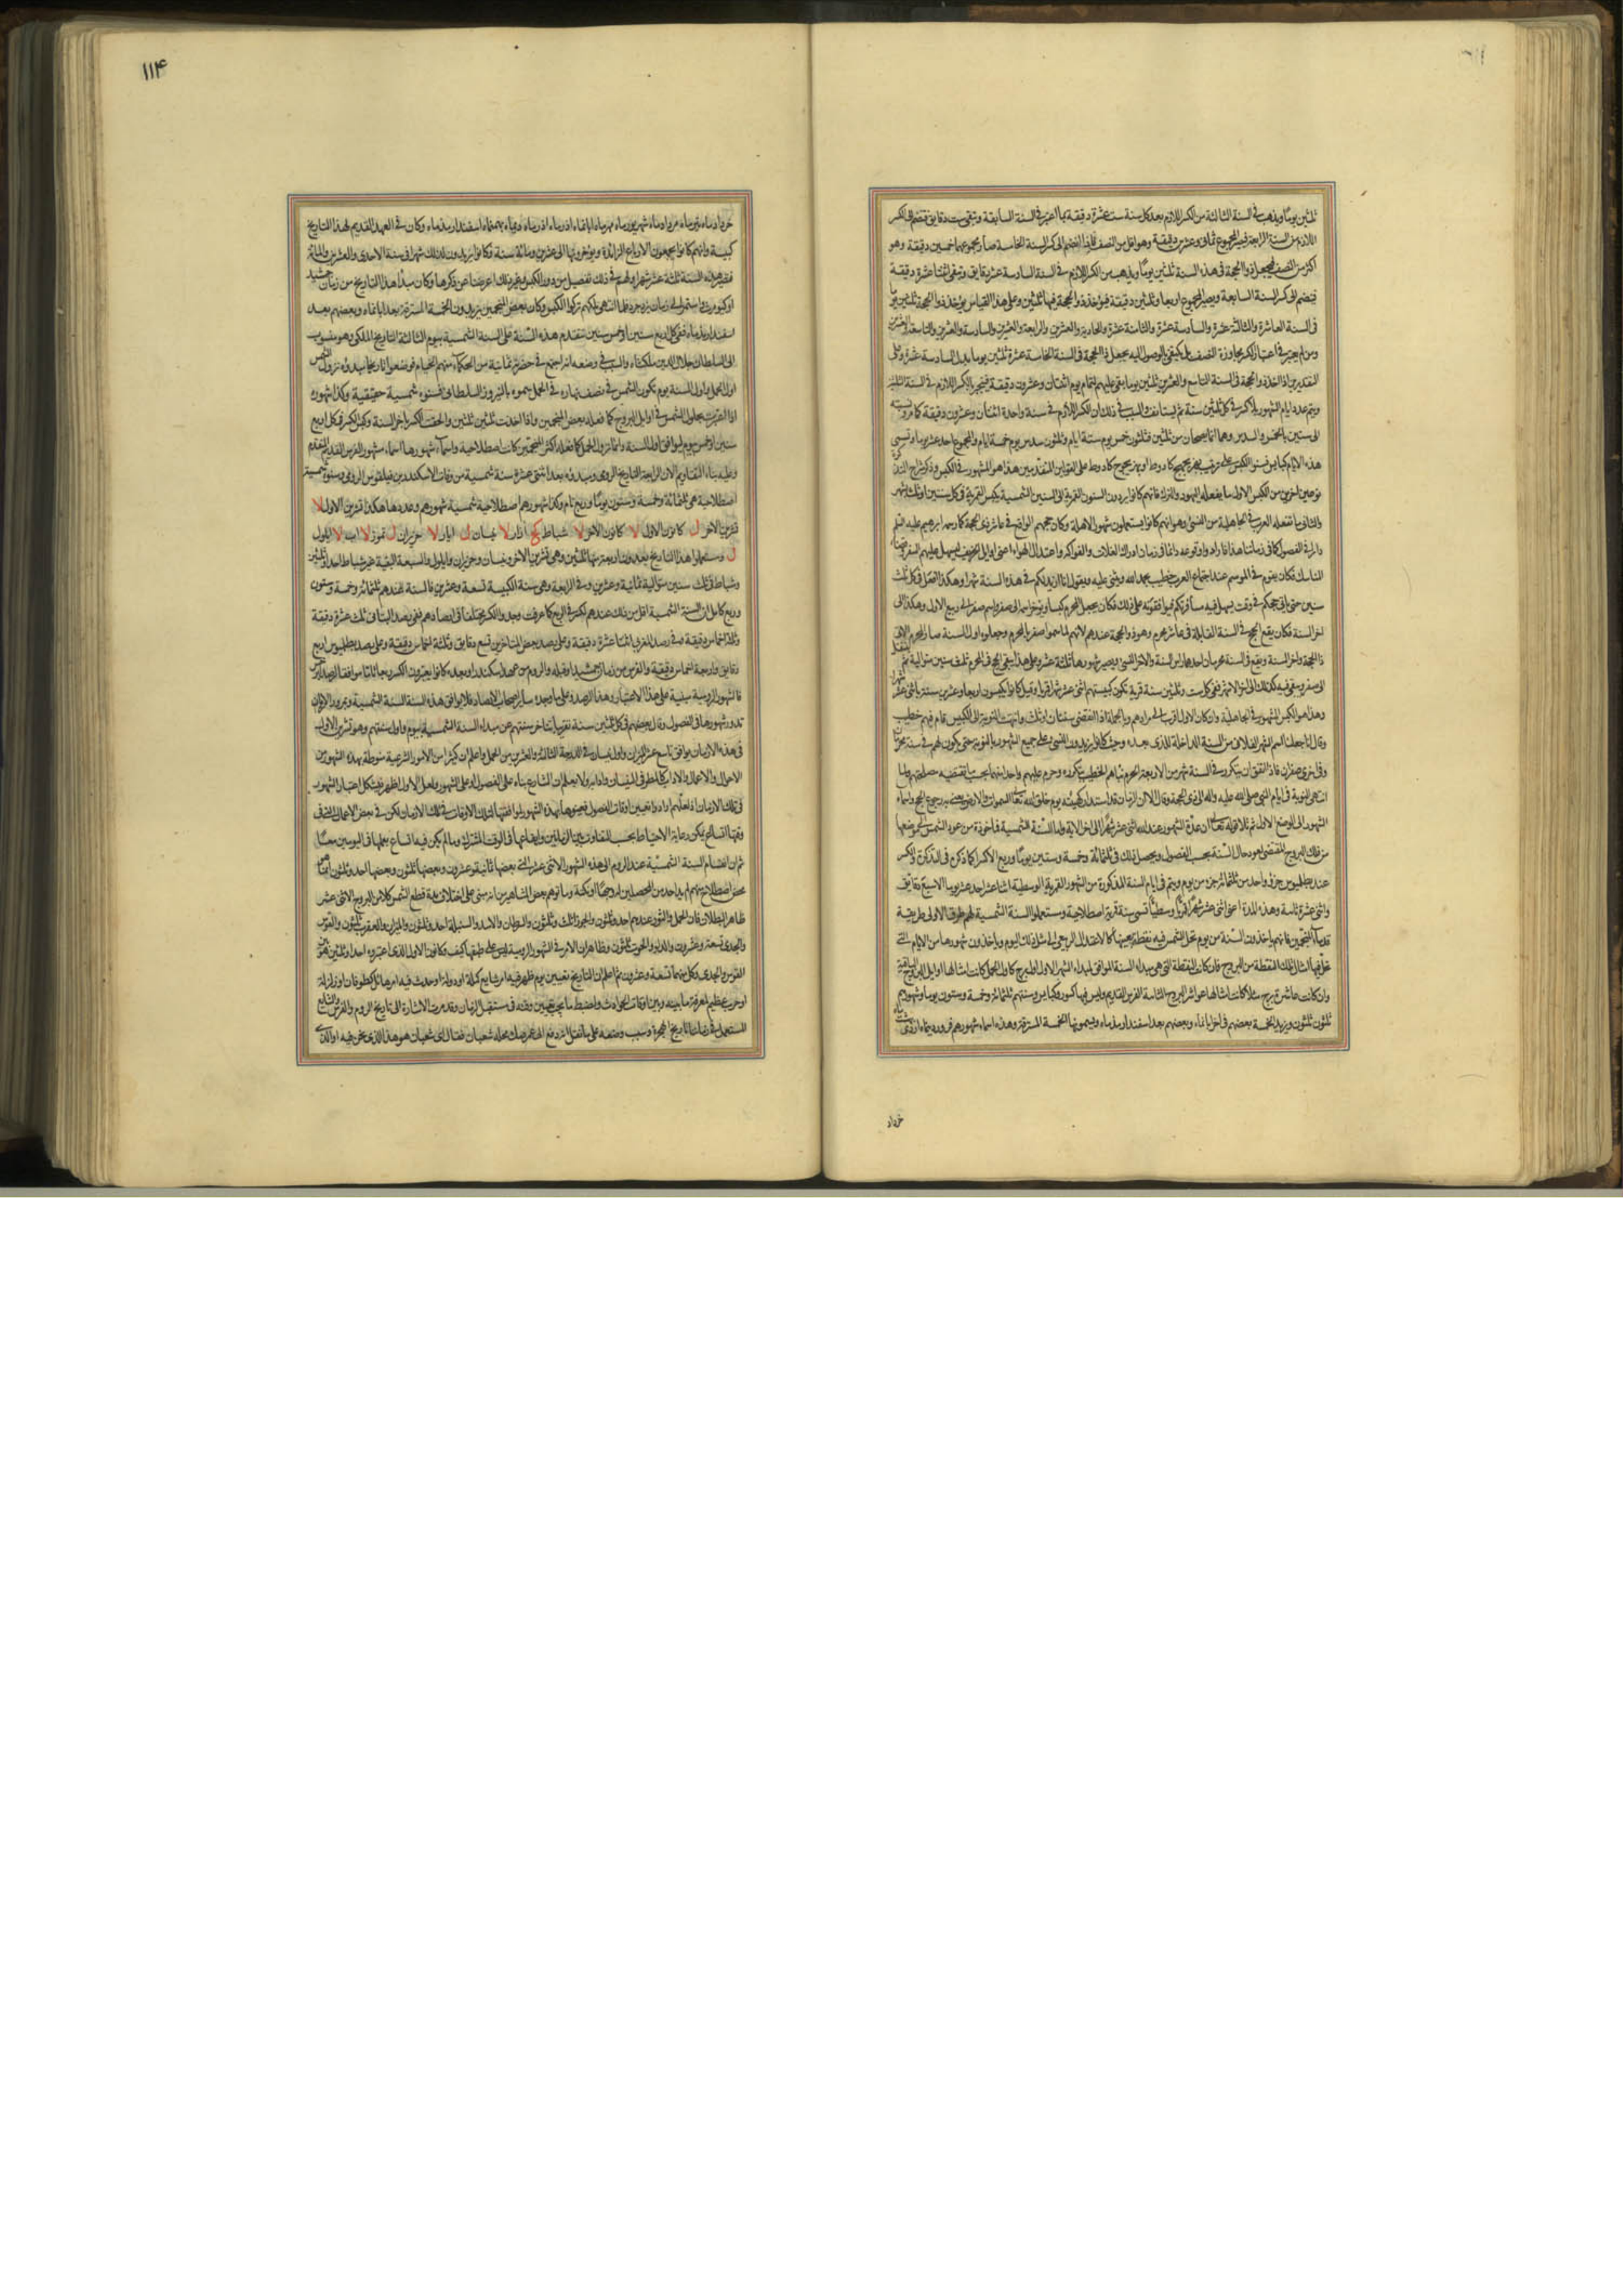 ثلثين يومًا ويذهب في السنة الثالثة من الكسر اللازم بعد كل سنة ست عشرة دقيقة
اللازم من السنة الرابعة فيصير المجموع ثمان وعشرين دقيقة وهو اقل من النصف فاذا انضم الى كسر السنة الخامسة صار مجموعهما خمسين دقيقة وهو
اكثر من النصف فيجعل ذو الحجة في هذه السنة ثلثين يومًا ويذهب من الكسر اللازم في السنة السادسة عشر دقايق وتبقى اثنتا عشرة دقيقة
فينضم الى كسر السنة السابعة ويصير المجموع اربعا وثلثين دقيقة فيؤخذ ذو الحجة فيها ثلثين وعلى هذا القياس يؤخذ ذو الحجة ثلثين
في السنة العاشرة والثالثة عشرة والسادسة عشرة والثامنة عشرة والحادية والعشرين والرابعة والعشرين والسادسة والعشرين والتاسعة
ومن لم يعتبر في اعتبار الكسر مجاوزة النصف بل يكتفي بالوصول اليه يجعل ذا الحجة في السنة الخامسة عشرة ثلثين يوما بدل السادسة عشرة وعلى
التقديرين اذا اخذ ذو الحجة في السنة التاسع والعشرين ثلثين يوما بقي عليهم لتمام يوم اثنتان وعشرون دقيقة فينجبر بالكسر اللازم في السنة
ويتم عدد ايام الشهور بلا كسر في كل ثلثين سنة ثم يستانف والسبب في ذلك ان الكسر اللازم في سنة واحدة اثنتان وعشرون دقيقة كما مر
الى ستين بالخمس والسدس وهما انما يصحان من ثلثين فثلثون خمس يوم ستة ايام وثلثون سدس يوم خمسة ايام والمجموع احد عشر يوما وتسمى
هذه الايام كبايس
نوعين اخرين من الكبس الاول ما يفعله اليهود والترك فانهم كانوا يردون السنين القمرية الى السنين الشمسية بكبس القمرية في كل سنتين او ثلث شهر
والثاني ما تفعله العرب في الجاهلية من النسئ وهو انهم كانوا يستعملون شهور الاهلة وكان حجهم الواقع في عاشر ذي الحجة كما رسمه ابرهيم عليه السلم
دايرا في الفصول كما في زماننا هذا فارادوا وقوعه دائما في زمان ادراك الغلات والفواكه واعتدال الهواء اعني اوايل الخريف ليسهل عليهم السفر
المناسك فكان يقوم في الموسم عند اجتماع العرب خطيب يحمد الله ويثني عليه ويقول انا ازيد لكم في هذه السنة شهرا وهكذا افعل في كل ثلث
سنين حتى ياتي حجكم في وقت يسهل فيه مسافرتكم فيوافقونه على ذلك فكان يجعل المحرم كبيسا ويؤخر اسمه الى صفر واسم صفر الى ربيع الاول وهكذا الى
اخر السنة فكان يقع الحج في السنة القابلة في عاشر محرم وهو ذو الحجة عندهم لانهم لما سموا صفر بالمحرم وجعلوه اول السنة صار المحرم
وهذا هو الكبس المشهور في الجاهلية وان كان الاول اقرب الى مرادهم وبالجملة اذا انقضى سنتان او ثلث وانتهت النوبة الى الكبيس قام فيهم خطيب
وقال انا جعلنا اسم الشهر الفلاني من السنة الداخلة للذي بعده وحيث كانوا يزيدون النسئ على جميع الشهور بالنوبة حتى يكون لهم في سنة محرمان
وفي اخرى صفران فاذا اتفق ان يتكرر في السنة شهر من الاربعة الحرم نبأهم الخطيب بتكرره وحرم عليهم واحدا منهما بحسب ما تقتضيه مصلحتهم ولما
انتهى النوبة في ايام النبي صلى الله عليه وآله الى ذي الحجة وقال الا ان الزمان قد استدار كهيئته يوم خلق الله تعالى السموات والارض يعني به رجوع الحج واسماء
الشهور الى الوضع الاول ثم تلا قوله تعالى ان عدة الشهور عند الله اثنى عشر شهرا الى اخر الاية واما السنة الشمسية فماخوذة من عود الشمس الى موضعها
من فلك البروج المقتضي لعود حال السنة بحسب الفصول ويحصل ذلك في ثلثمائة وخمسة وستين يوما وربع الا كسرا كما ذكره في التذكرة
عند بطلميوس جزؤ واحد من ثلثمائة جزء من يوم ويتم في ايام السنة المذكورة من الشهور القمرية الوسطية اثنا عشر واحد عشر يوما الا سبع دقايق
واثنى عشرة ثانية وهذه المدة اعني اثنى عشر شهرا قمريا وسطيا تسمى سنة قمرية اصطلاحية ومستعملوا السنة الشمسية لهم طرق الاولى طريقة
قدماء المنجمين فانهم ياخذون السنة من يوم تحل الشمس فيه نقطة بعينها كالاعتدال الربيعي الى مثل ذلك اليوم وياخذون شهورها من الايام التي
تحل فيها امثال تلك النقطة من البروج فان كانت النقطة التي هي مبدء السنة الموافق لمبداء الشهر الاول اول برج كاول الحمل كانت امثالها اوايل البروج الباقية
وان كانت عاشرة برج مثلا كانت امثالها عواشر البروج الثانية سنة الفرس القديم وليس فيها كسور وكبايس وسنتهم ثلثمائة وخمسة وستون يوما وشهورهم
ثلثون ثلثون ويزيد الخمسة بعضهم في اخر ابانماه وبعضهم بعد اسفندارمذماه ويسمونها الخمسة المسترقة وهذه اسماء شهورهم فروردينماه
خرداد
١١۴
خردادماه تيرماه مردادماه شهريورماه مهرماه ابانماه اذرماه ديماه بهمنماه اسفندارمذماه وكان في العهد القديم لهذا التاريخ
كبيسة وانهم كانوا يجمعون الارباع الزائدة ويؤخرونها الى عشرين ومائة سنة وكانوا يزيدون لذلك شهرا في سنة الاحدى والعشرين والمائة
فتصير هذه السنة ثلثة عشر شهرا ولهم في ذلك تفصيل من دور الكبس وغير ذلك اعرضنا عن ذكرها وكان مبدأ هذا التاريخ من زمان جمشيد
او كيومرث واستمر الى زمان يزدجرد فلما انتهى ملكهم تركوا الكبس وكان بعض المنجمين يزيدون الخمسة المسترقة بعد ابانماه وبعضهم بعد
اسفندارمذماه ففي كل اربع سنين او خمس سنين تتقدم هذه السنة على السنة الشمسية بيوم الثالثة التاريخ الملكي وهو منسوب
الى السلطان جلال الدين ملكشاه والسبب في وضعه انه اجتمع في حضرته ثمانية من الحكماء منهم الخيام فوضعوا تاريخا مبدؤه نزول الشمس
اول الحمل واول السنة يوم تكون الشمس في نصف نهاره في الحمل سموه بالنيروز السلطاني فسنوه شمسية حقيقية وكذا شهوره
اذا اعتبرت بحلول الشمس في اوايل البروج كما فعله بعض المنجمين واذا اخذت ثلثين ثلثين والحقت الكسر باخر السنة وكبس الكسر في كل اربع
سنين او خمس بيوم ليوافق اول السنة دائما نزول الحمل كما فعله اكثر المنجمين كانت اصطلاحية واسماء شهورها اسماء شهور الفرس القديم
وعليه بناء التقاويم الان الرابعة التاريخ الرومي ومبدؤه بعد اثنتي عشرة سنة شمسية من وفات الاسكندر بن فيلقوس الرومي وسنوه شمسية
اصطلاحية هي ثلثمائة وخمسة وستون يوما وربع تام وكذا شهورهم اصطلاحية شمسية شهورهم وعددها هكذا تشرين الاول لا
تشرين الاخر ل كانون الاول لا كانون الاخر لا شباط كح اذار لا نيسان ل ايار لا حزيران ل تموز لا اب لا ايلول
ل ومستعملوا هذا التاريخ يعدون اربعة منها ثلثين وهي تشرين الاخر ونيسان وحزيران وايلول والسبعة البقية غير شباط احدا وثلثين
وشباط في ثلث سنين متوالية ثمانية وعشرين وفي الرابعة وهي سنة الكبيسة تسعة وعشرين فالسنة عندهم ثلثمائة وخمسة وستون
وربع كامل
وثلثة اخماس دقيقة وفي رصد المغربي اثنتا عشرة دقيقة وعلى رصد بعض المتاخرين تسع دقايق وثلثة اخماس دقيقة وعلى رصد بطلميوس اربع
دقايق واربعة اخماس دقيقة والفرس من زمان جمشيد او قبله والروم من عهد اسكندر او بعده كانوا يعتبرون الكسر ربعا تاما موافقا لرصد
فالشهور الرومية مبنية على هذا الاعتبار وهذا الرصد وعلى ما وجده ساير اصحاب الارصاد فلا يوافق هذه السنة السنة الشمسية وبمرور الازمان
تدور شهورها في الفصول وقال بعضهم في كل ثلثين سنة تقريبا يتاخر سنتهم عن مبداء السنة الشمسية بيوم واول سنتهم وهو تشرين الاول
في هذه الازمان يوافق تاسع عشر الميزان واول نيسان في الدرجة الثالثة والعشرين من الحمل واعلم ان كثيرا من الامور الشرعية منوطة بهذه الشهور من
الاحوال والاعمال والاداب كالمطر في النيسان وامثاله ولا يعلم ان الشارع بناه على الفصول او على الشهور ولعل الاول اظهر فيشكل اعتبار الشهور
وقتها اتساع يمكن رعاية الاحتياط بحسب التفاوت بين الزمانين وايقاعها في الوقت المشترك وما لم يكن فيه اتساع يعملها في اليومين معا
ثم ان انقسام السنة الشمسية عند الروم الى هذه الشهور الاثنى عشر التي بعضها ثمانية وعشرون وبعضها ثلثون وبعضها احد وثلثون انما
محض اصطلاح منهم لم يذكر احد من المحصلين له وجها او نكتة وما توهم بعض المشاهير من انه مبني على اختلاف مدة قطع الشمس كلا من البروج الاثنى عشر
ظاهر البطلان فان الحمل والثور عندهم احد وثلثون والجوزا اثنان وثلثون والسرطان والاسد والسنبلة احد وثلثون والميزان والعقرب ثلثون والقوس
والجدي تسعة وعشرون والدلو والحوت ثلثون وظاهر ان الامر في الشهور الرومية ليس على طبقها كيف وكانون الاول الذي اعتبروه احدا وثلثين هو
القوس والجدي وكل منهما تسعة وعشرون ثم اعلم ان التاريخ تعيين يوم ظهر فيه امر شايع كملة او دولة او حدث فيه امر هائل كطوفان او زلزلة
او حرب عظيم لمعرفة ما بينه وبين اوقات الحوادث ولضبط ما يجب تعيين وقته في مستقبل الزمان وقد مرت الاشارة الى تاريخ الروم والفرس والشايع
المستعمل في زماننا تاريخ الهجرة وسبب وضعه على ما نقل انه دفع الى عمر صك محله شعبان فقال اي شعبان هو هذا الذي نحن فيه او الذي